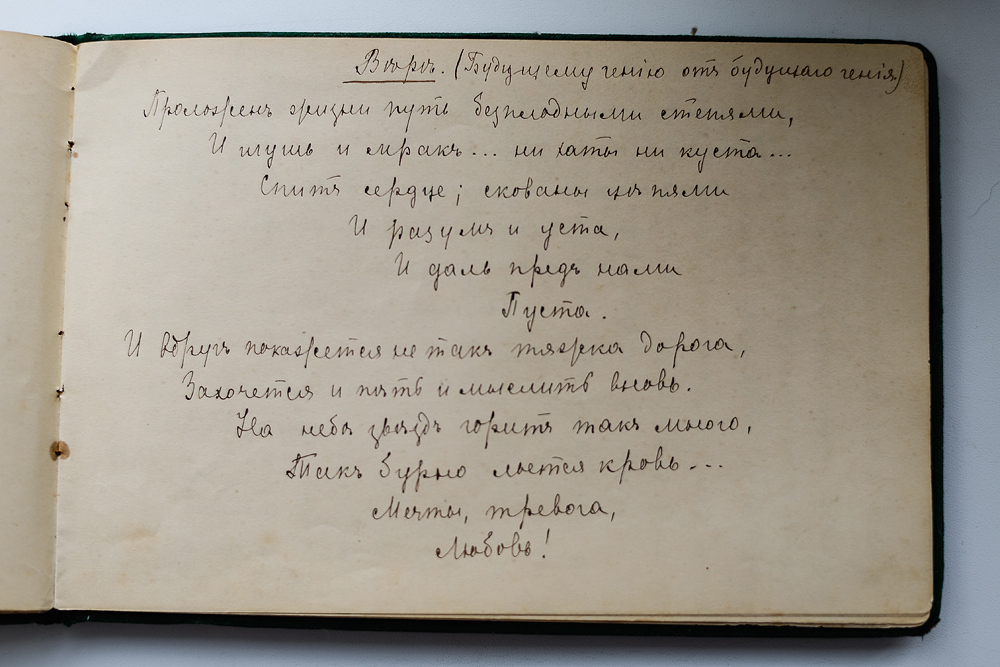 Вѣеръ. (Будущему генію отъ будущаго генія)
Проложенъ жизни путь безплодными степями,
И глушь и мракъ... ни хаты ни куста...
Спитъ сердце; скованы цѣпями
И разумъ и уста,
И даль предъ нами
Пуста.
И вдругъ покажется не такъ тяжка дорога,
Захочется и пѣть и мыслить вновь.
На небѣ звѣздъ горитъ такъ много,
Такъ бурно льется кровь...
Мечты, тревога,
Любовь!